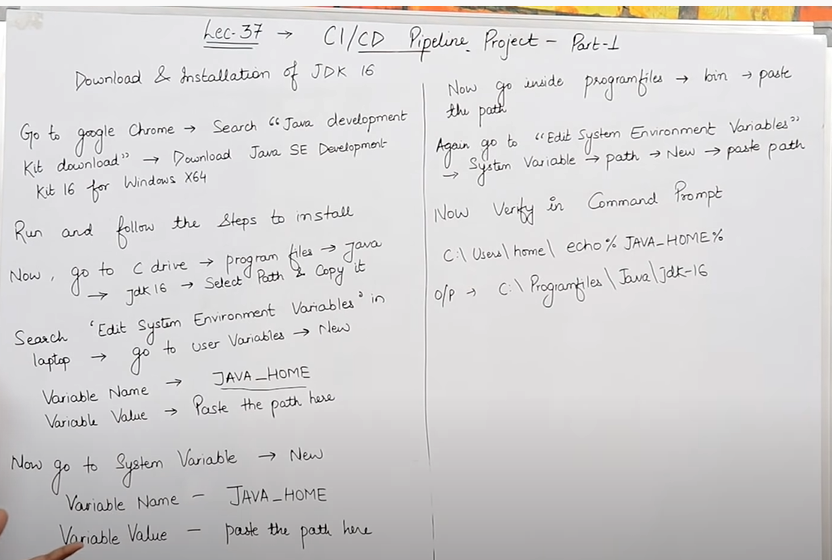 Lec-37 → CI/CD Pipeline Project - Part-1
Download & Installation of JDK 16
Go to google Chrome → Search "Java development
Kit download" → Download Java SE Development
Kit 16 for Windows X64
Run and follow the Steps to install
Now, go to C drive → program files → Java
→ Jdk 16 → Select Path & Copy it
Search 'Edit System Environment Variables' in
laptop → go to user Variables → New
Variable Name → JAVA_HOME
Variable Value → Paste the path here
Now go to System Variable → New
Variable Name - JAVA_HOME
Variable Value - paste the path here
Now go inside programfiles → bin → paste
the path
Again go to "Edit System Environment Variables"
→ System Variable → path → New → paste path
Now Verify in Command Prompt
C:\Users\home\ echo% JAVA_HOME%
O/P → C:\Programfiles\Java\Jdk-16